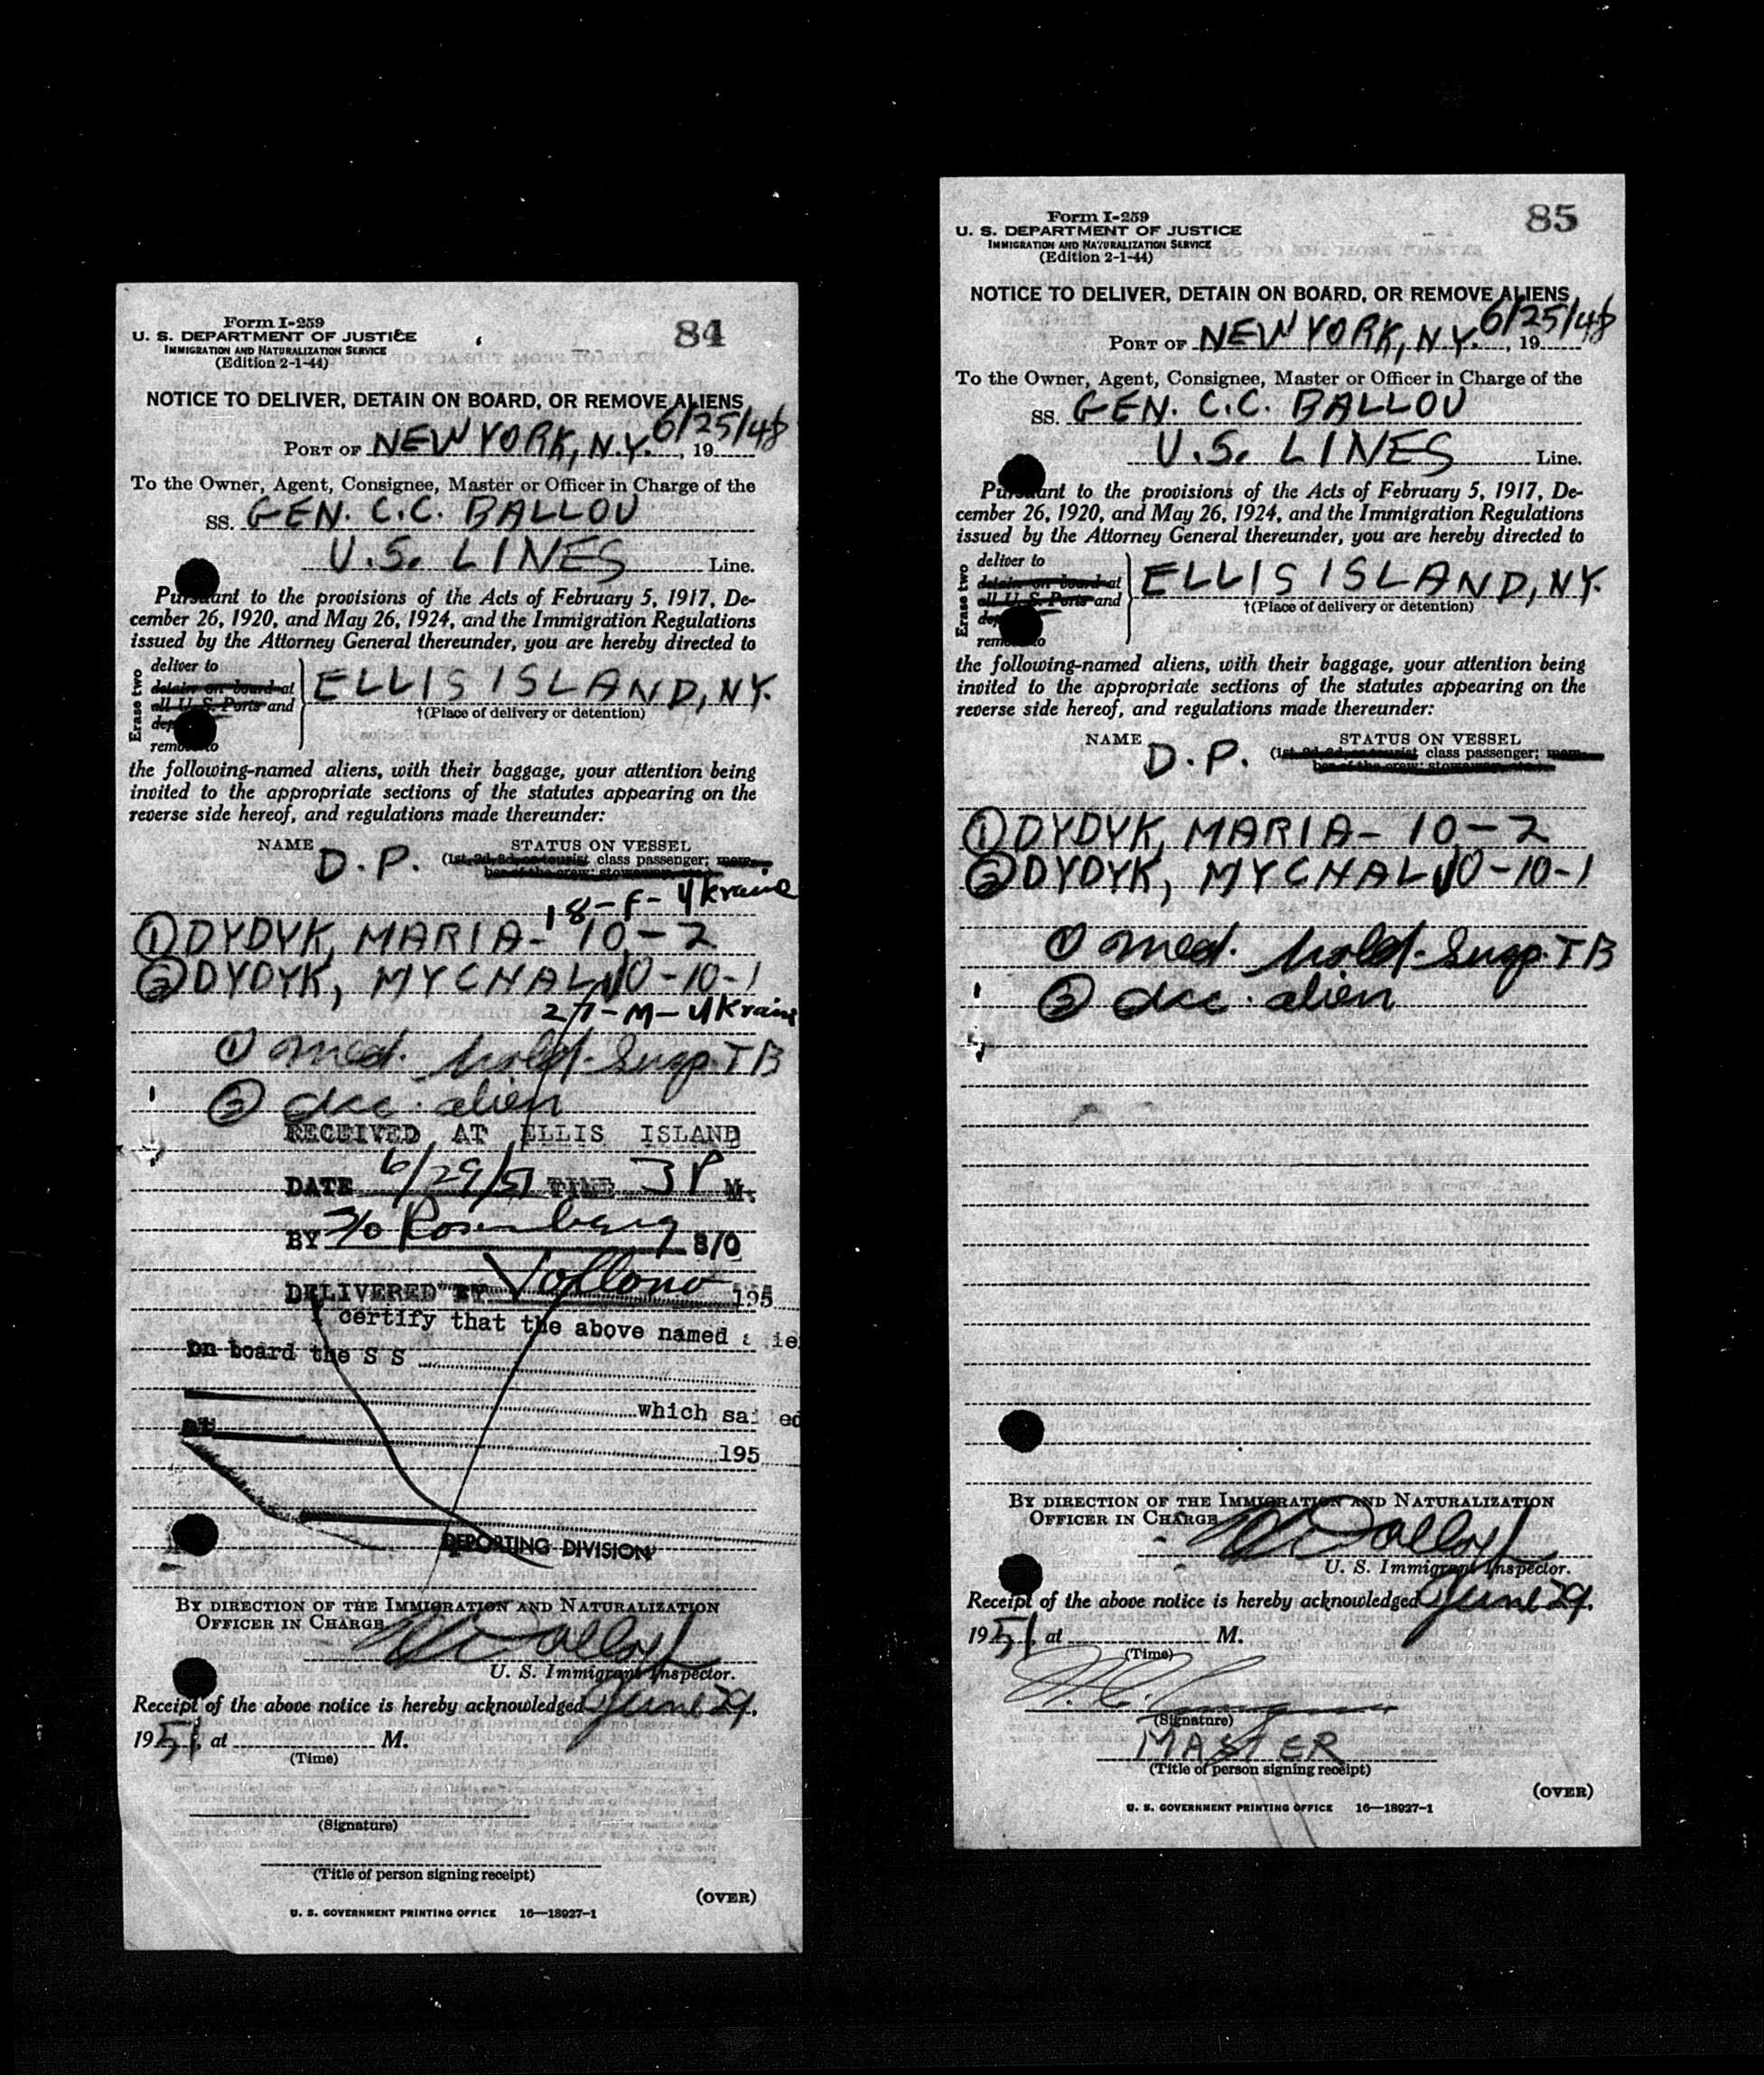 Form I-259
84
U. S. DEPARTMENT OF JUSTICE
IMMIGRATION AND NATURALIZATION SERVICE
(Edition 2-1-44)
NOTICE TO DELIVER, DETAIN ON BOARD, OR REMOVE ALIENS
PORT OF NEW YORK, N.Y. 6/25/48, 19
To the Owner, Agent, Consignee, Master or Officer in Charge of the
SS. GEN. C.C. BALLOU
U.S. LINES Line.
Pursuant to the provisions of the Acts of February 5, 1917, De-
cember 26, 1920, and May 26, 1924, and the Immigration Regulations
issued by the Attorney General thereunder, you are hereby directed to
Erase two
deliver to
detain on board at
all U. S. Ports and
remove to
ELLIS ISLAND, NY.
†(Place of delivery or detention)
the following-named aliens, with their baggage, your attention being
invited to the appropriate sections of the statutes appearing on the
reverse side hereof, and regulations made thereunder:
NAME D.P. STATUS ON VESSEL
(1st, 2d, 3d, or tourist class passenger; mem-
ber of the crew; stowaway, etc.)
18-F-Ukraine
① DYDYK, MARIA- 10-2
② DYDYK, MYCHAJLO-10-1
27-M-Ukraine
① med. hold-Susp. TB
② acc. alien
RECEIVED AT ELLIS ISLAND
DATE 6/29/51 TIME 3 P M.
BY Rosenberg S/O
DELIVERED BY 195
certify that the above named alie
on board the S S
which sailed
at
195
DEPORTING DIVISION
BY DIRECTION OF THE IMMIGRATION AND NATURALIZATION
OFFICER IN CHARGE
U. S. Immigrant Inspector.
Receipt of the above notice is hereby acknowledged June 29,
1951, at M.
(Time)
(Signature)
(Title of person signing receipt)
(OVER)
U. S. GOVERNMENT PRINTING OFFICE 16—18927-1
Form I-259
85
U. S. DEPARTMENT OF JUSTICE
IMMIGRATION AND NATURALIZATION SERVICE
(Edition 2-1-44)
NOTICE TO DELIVER, DETAIN ON BOARD, OR REMOVE ALIENS
PORT OF NEW YORK, N.Y. 6/25/48, 19
To the Owner, Agent, Consignee, Master or Officer in Charge of the
SS. GEN. C.C. BALLOU
U.S. LINES Line.
Pursuant to the provisions of the Acts of February 5, 1917, De-
cember 26, 1920, and May 26, 1924, and the Immigration Regulations
issued by the Attorney General thereunder, you are hereby directed to
Erase two
deliver to
detain on board at
all U. S. Ports and
remove to
ELLIS ISLAND, NY.
†(Place of delivery or detention)
the following-named aliens, with their baggage, your attention being
invited to the appropriate sections of the statutes appearing on the
reverse side hereof, and regulations made thereunder:
NAME D.P. STATUS ON VESSEL
(1st, 2d, 3d, or tourist class passenger; mem-
ber of the crew; stowaway, etc.)
① DYDYK, MARIA- 10-2
② DYDYK, MYCHAJLO-10-1
① med. hold-Susp. TB
② acc. alien
BY DIRECTION OF THE IMMIGRATION AND NATURALIZATION
OFFICER IN CHARGE
U. S. Immigrant Inspector.
Receipt of the above notice is hereby acknowledged June 29,
1951, at M.
(Time)
(Signature)
MASTER
(Title of person signing receipt)
(OVER)
U. S. GOVERNMENT PRINTING OFFICE 16—18927-1